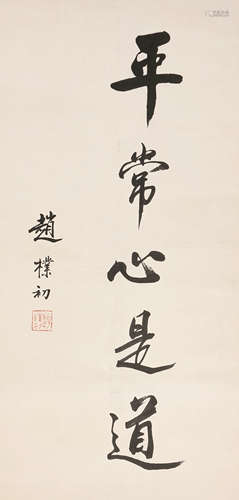 平常心是道
趙樸初